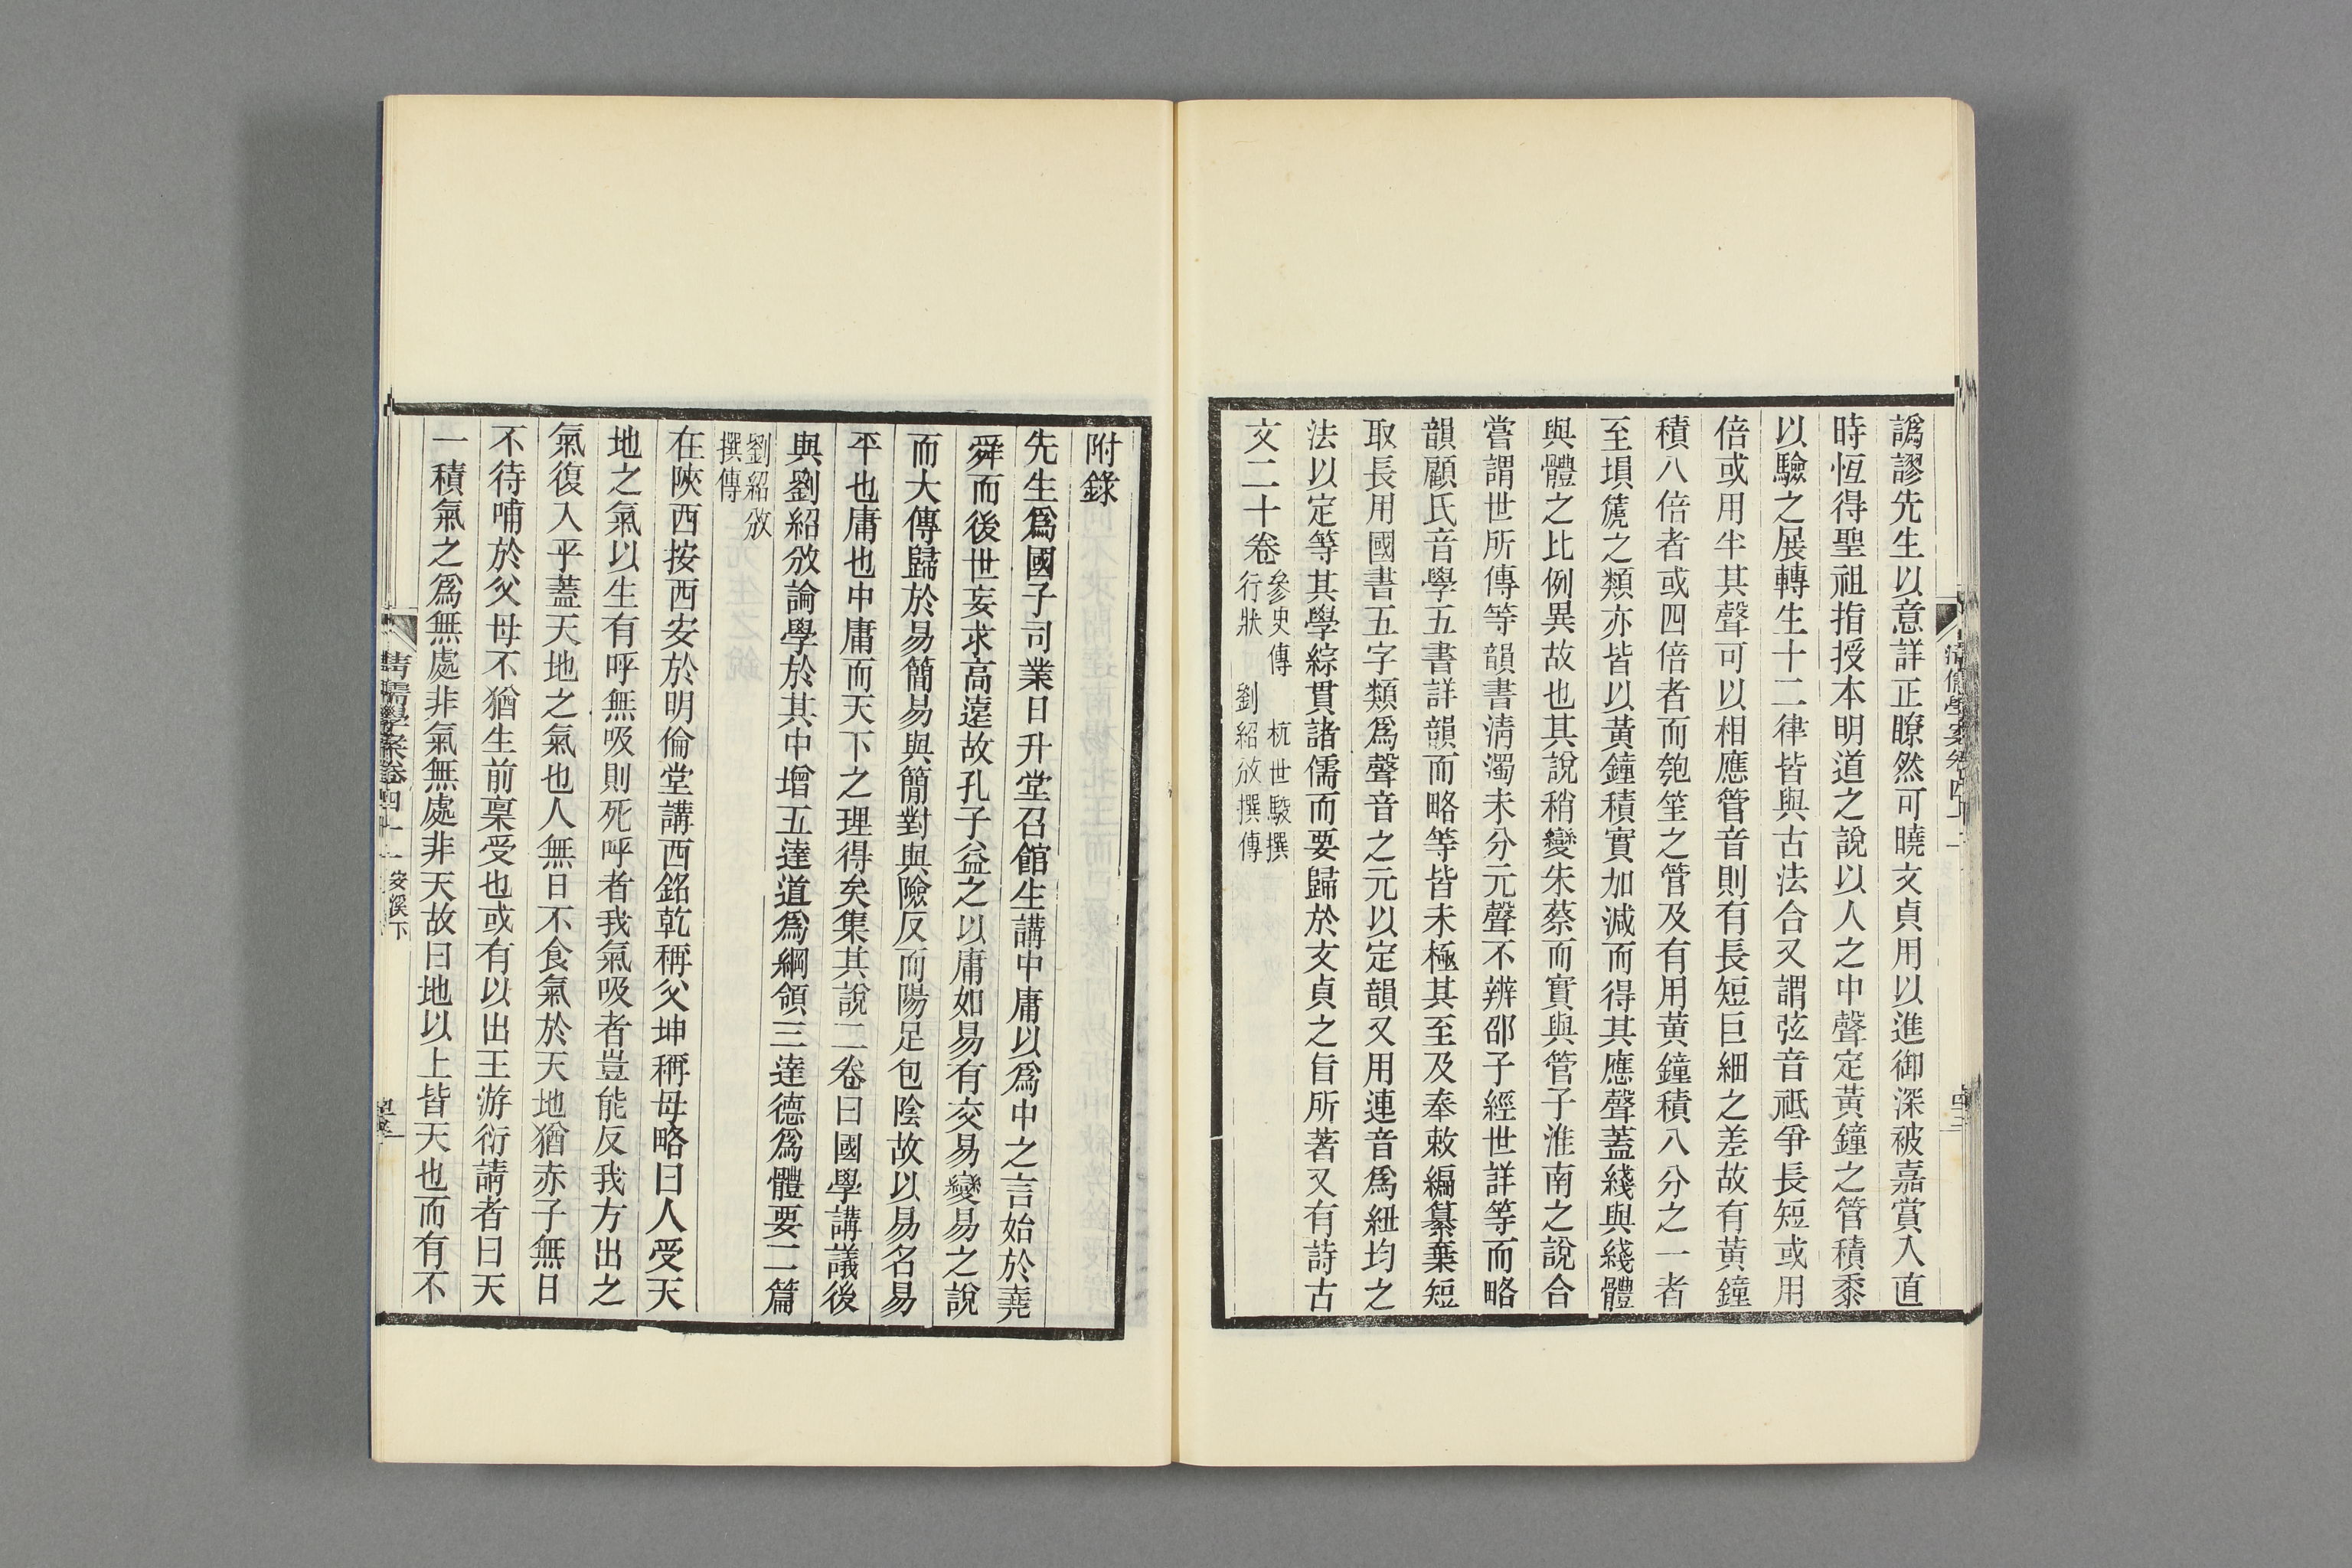 譌謬先生以意詳正瞭然可曉文貞用以進御深被嘉賞入直
時恆得聖祖指授本明道之說以人之中聲定黃鐘之管積黍
以驗之展轉生十二律皆與古法合又謂弦音祗爭長短或用
倍或用半其聲可以相應管音則有長短巨細之差故有黃鐘
積八倍者或四倍者而匏笙之管及有用黃鐘積八分之一者
至塤篪之類亦皆以黃鐘積實加減而得其應聲蓋綫與綫體
與體之比例異故也其說稍變朱蔡而實與管子淮南之說合
嘗謂世所傳等韻書清濁未分元聲不辨邵子經世詳等而略
韻顧氏音學五書詳韻而略等皆未極其至及奉敕編纂棄短
取長用國書五字類爲聲音之元以定韻又用連音爲紐均之
法以定等其學綜貫諸儒而要歸於文貞之旨所著又有詩古
文二十卷
參史傳　杭世駿撰
行狀　劉紹攽撰傳
附錄
先生爲國子司業日升堂召館生講中庸以爲中之言始於堯
舜而後世妄求高遠故孔子益之以庸如易有交易變易之說
而大傳歸於易簡易與簡對與險反而陽足包陰故以易名易
平也庸也中庸而天下之理得矣集其說二卷曰國學講議後
與劉紹攽論學於其中增五達道爲綱領三達德爲體要二篇
劉紹攽
撰傳
在陝西按西安於明倫堂講西銘乾稱父坤稱母略曰人受天
地之氣以生有呼無吸則死呼者我氣吸者豈能反我方出之
氣復入乎蓋天地之氣也人無日不食氣於天地猶赤子無日
不待哺於父母不猶生前稟受也或有以出王游衍請者曰天
一積氣之爲無處非氣無處非天故曰地以上皆天也而有不
清儒學案卷四十一
安溪下